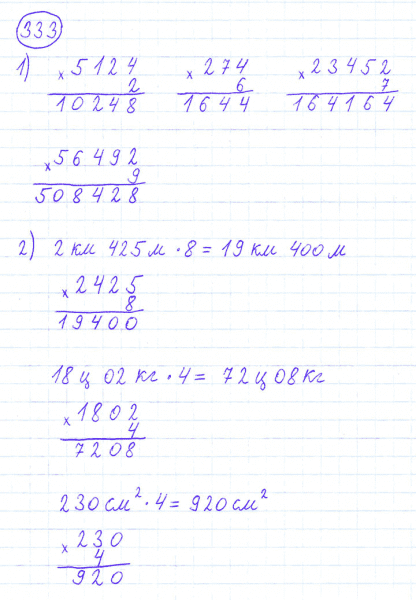 333
1) × 5124 × 274 × 23452
2 6 7
10248 1644 164164
× 56492
9
508428
2) 2 км 425 м · 8 = 19 км 400 м
× 2425
8
19400
18 ц 02 кг · 4 = 72 ц 08 кг
× 1802
4
7208
230 см² · 4 = 920 см²
× 230
4
920